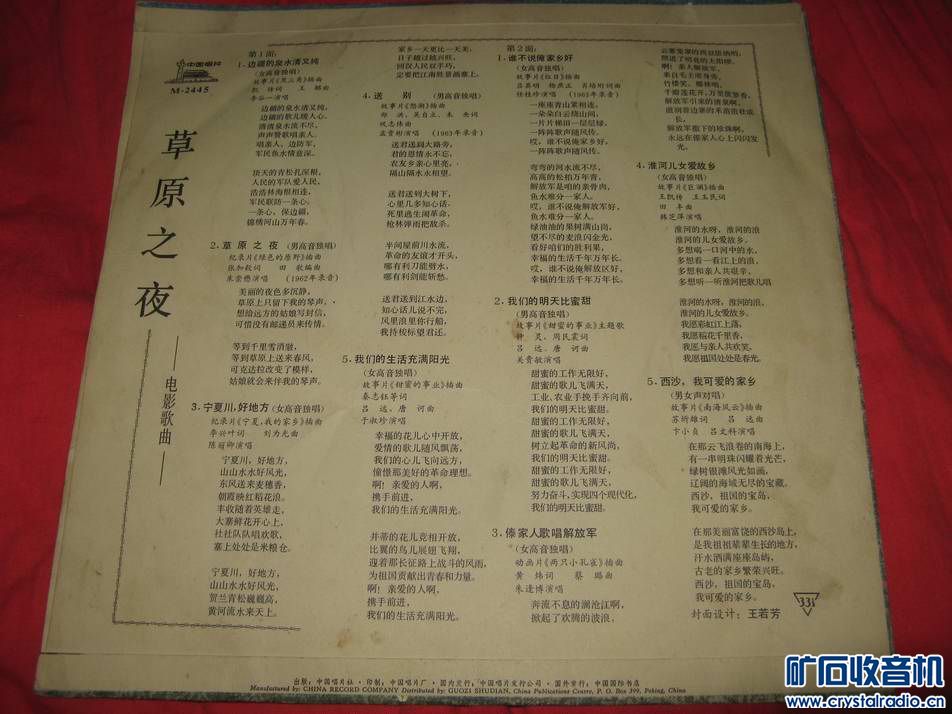 中国唱片
M-2445
草原之夜
——电影歌曲——
第1面:
1.边疆的泉水清又纯
(女高音独唱)
故事片《黑三角》插曲
凯传词 王酩曲
李谷一演唱
边疆的泉水清又纯,
边疆的歌儿暖人心。
清清泉水流不尽,
声声赞歌唱亲人,
唱亲人,边防军,
军民鱼水情意深。
顶天的青松扎深根,
人民的军队爱人民,
浩浩林海根相连,
军民联防一条心;
一条心,保边疆,
锦绣河山万年春。
2.草原之夜(男高音独唱)
纪录片《绿色的原野》插曲
张加毅词 田歌编曲
朱崇懋演唱 (1962年录音)
美丽的夜色多沉静,
草原上只留下我的琴声,
想给远方的姑娘写封信,
可惜没有邮递员来传情。
等到千里雪消融,
等到草原上送来春风,
可克达拉改变了模样,
姑娘就会来伴我的琴声。
3.宁夏川,好地方(女高音独唱)
纪录片《宁夏,我的家乡》插曲
李兴叶词 刘为光曲
陈丽卿演唱
宁夏川,好地方,
山山水水好风光,
东风送来麦穗香,
朝霞映红稻花浪。
丰收随着英雄走,
大寨鲜花开心上,
社社队队唱欢歌,
塞上处处是米粮仓。
宁夏川,好地方,
山山水水好风光,
贺兰青松巍巍高,
黄河流水来天上。
家乡一天更比一天美,
日子越过越兴旺,
回汉人民双手巧,
定要把江南胜景画塞上。
4.送别(男高音独唱)
故事片《怒潮》插曲
郑洪、吴自立、未央词
巩志伟曲
孟贵彬演唱 (1963年录音)
送君送到大路旁,
君的恩情永不忘,
农友乡亲心里亮,
隔山隔水永相望。
送君送到大树下,
心里几多知心话,
死里逃生闹革命,
枪林弹雨把敌杀。
半间屋前川水流,
革命的友谊才开头,
哪有利刀能劈水,
哪有利剑能斩愁。
送君送到江水边,
知心话儿说不完,
风里浪里你行船,
我持梭标望君还。
5.我们的生活充满阳光
(女高音独唱)
故事片《甜蜜的事业》插曲
秦志钰等词
吕远、唐诃曲
于淑珍演唱
幸福的花儿心中开放,
爱情的歌儿随风飘荡,
我们的心儿飞向远方,
憧憬那美好的革命理想。
啊!亲爱的人啊,
携手前进,
我们的生活充满阳光。
并蒂的花儿竞相开放,
比翼的鸟儿展翅飞翔,
迎着那长征路上战斗的风雨,
为祖国贡献出青春和力量。
啊!亲爱的人啊,
携手前进,
我们的生活充满阳光。
第2面:
1.谁不说俺家乡好
(女高音独唱)
故事片《红日》插曲
吕其明 杨庶正 肖培珩词曲
任桂珍演唱 (1963年录音)
一座座青山紧相连,
一朵朵白云绕山间,
一片片梯田一层层绿,
一阵阵歌声随风传。
哎,谁不说俺家乡好
一阵阵歌声随风传。
弯弯的河水流不尽,
高高的松柏万年青,
解放军是咱的亲骨肉,
鱼水难分一家人。
哎,谁不说俺解放军好,
鱼水难分一家人。
绿油油的果树满山岗,
望不尽的麦浪闪金光,
看好咱们的胜利果,
幸福的生活千年万年长。
哎,谁不说俺解放区好,
幸福的生活千年万年长。
2.我们的明天比蜜甜
(男高音独唱)
故事片《甜蜜的事业》主题歌
钟灵、周民震词
吕远、唐诃曲
吴贵敏演唱
甜蜜的工作无限好,
甜蜜的歌儿飞满天,
工业、农业手挽手齐向前,
我们的明天比蜜甜。
甜蜜的工作无限好,
甜蜜的歌儿飞满天,
树立起革命的新风尚,
我们的明天比蜜甜。
甜蜜的工作无限好,
甜蜜的歌儿飞满天,
努力奋斗、实现四个现代化,
我们的明天比蜜甜。
3.傣家人歌唱解放军
(女高音独唱)
动画片《两只小孔雀》插曲
黄炜词 蔡璐曲
朱逢博演唱
奔流不息的澜沧江啊,
掀起了欢腾的波浪。
啊!亲人解放军,
解放军引来的清泉啊,
解放军撒下的珍珠啊,
永远在傣家人心上闪闪发
光。
4.淮河儿女爱故乡
(女高音独唱)
故事片《巨澜》插曲
王凯传 王玉民词
田丰曲
韩芝萍演唱
淮河的水呀,淮河的浪
淮河的儿女爱故乡。
多想喝一口河中的水,
多想看一看江上的浪,
多想和亲人共艰辛,
多想听一听淮河把歌儿唱
淮河的水呀,淮河的浪,
淮河的儿女爱故乡。
我愿彩虹江上落,
我愿稻花千里香,
我愿与亲人共欢笑,
我愿祖国处处是春光。
5.西沙,我可爱的家乡
(男女声对唱)
故事片《南海风云》插曲
苏圻雄词 吕远曲
卞小贞 吕文科演唱
在那云飞浪卷的南海上,
有一串明珠闪耀着光芒,
绿树银滩风光如画,
辽阔的海域无尽的宝藏。
西沙,祖国的宝岛,
我可爱的家乡。
在那美丽富饶的西沙岛上,
是我祖祖辈辈生长的地方,
汗水洒满座座岛屿,
古老的家乡繁荣兴旺。
西沙,祖国的宝岛,
我可爱的家乡。
33⅓
封面设计:王若芳
出版:中国唱片社·印制:中国唱片厂·国内发行:中国唱片发行公司·国外发行:中国国际书店
Manufactured by CHINA RECORD COMPANY Distributed by: GUOZI SHUDIAN, China Publications Centre, P. O. Box 399, Peking, China
矿石收音机
www.crystalradio.cn